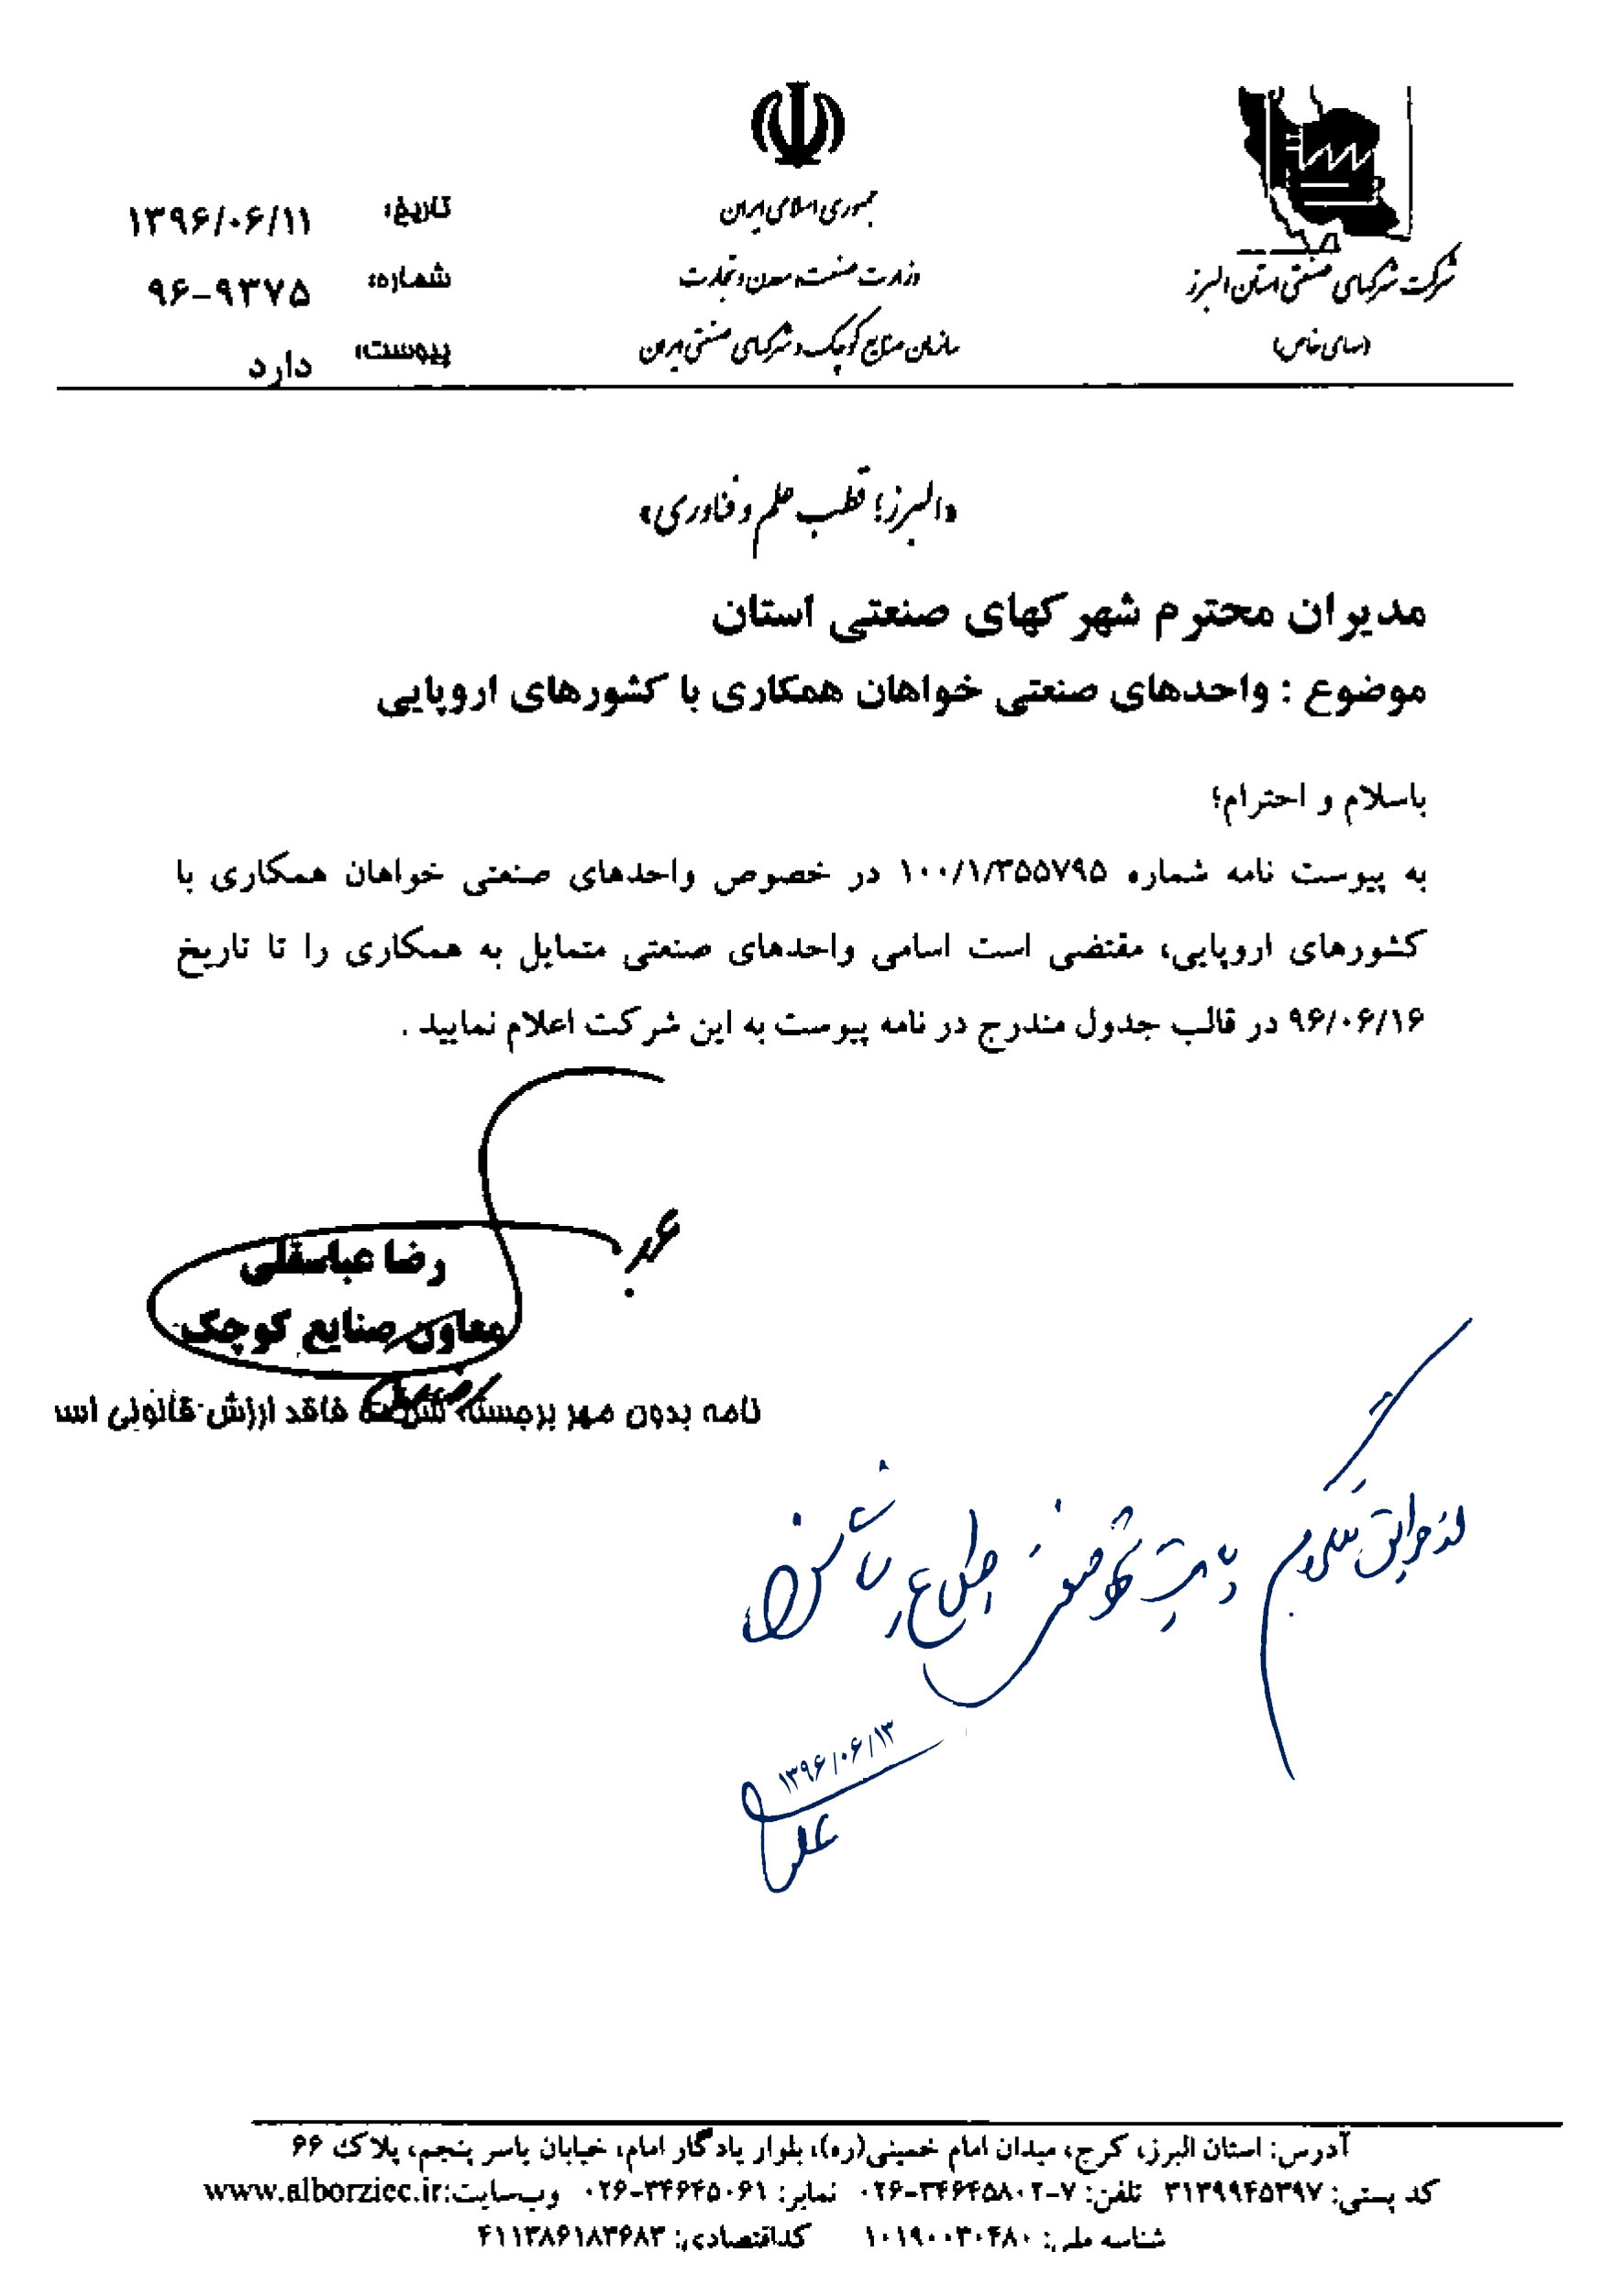 شرکت شهرکهای صنعتی استان البرز
(سهامی خاص)
جمهوری اسلامی ایران
وزارت صنعت، معدن و تجارت
سازمان صنایع کوچک و شهرکهای صنعتی ایران
تاریخ: ۱۳۹۶/۰۶/۱۱
شماره: ۹۶-۹۳۷۵
پیوست: دارد
«البرز؛ قطب علم و فناوری»
مدیران محترم شهرکهای صنعتی استان
موضوع : واحدهای صنعتی خواهان همکاری با کشورهای اروپایی
باسلام و احترام؛
به پیوست نامه شماره ۱۰۰/۱/۳۵۵۷۹۵ در خصوص واحدهای صنعتی خواهان همکاری با
کشورهای اروپایی، مقتضی است اسامی واحدهای صنعتی متمایل به همکاری را تا تاریخ
۹۶/۰۶/۱۶ در قالب جدول مندرج در نامه پیوست به این شرکت اعلام نمایید .
رضا عباسقلی
معاون صنایع کوچک
نامه بدون مهر برجسته شرکت فاقد ارزش قانونی اس
از طریق تلگرام
صنعتی اطلاع رسانی شود
۱۳۹۶/۰۶/۱۳
آدرس: استان البرز، کرج، میدان امام خمینی(ره)، بلوار یادگار امام، خیابان یاسر پنجم، پلاک ۶۶
کد پستی: ۳۱۳۹۹۴۵۳۹۷ تلفن: ۷-۰۲۶-۳۴۶۴۵۸۰۲ نمابر: ۰۲۶-۳۴۶۴۵۰۶۱ وب‌سایت:www.alborziec.ir
شناسه ملی: ۱۰۱۹۰۰۳۰۴۸۰ کداقتصادی: ۴۱۱۳۸۶۱۸۳۶۸۳